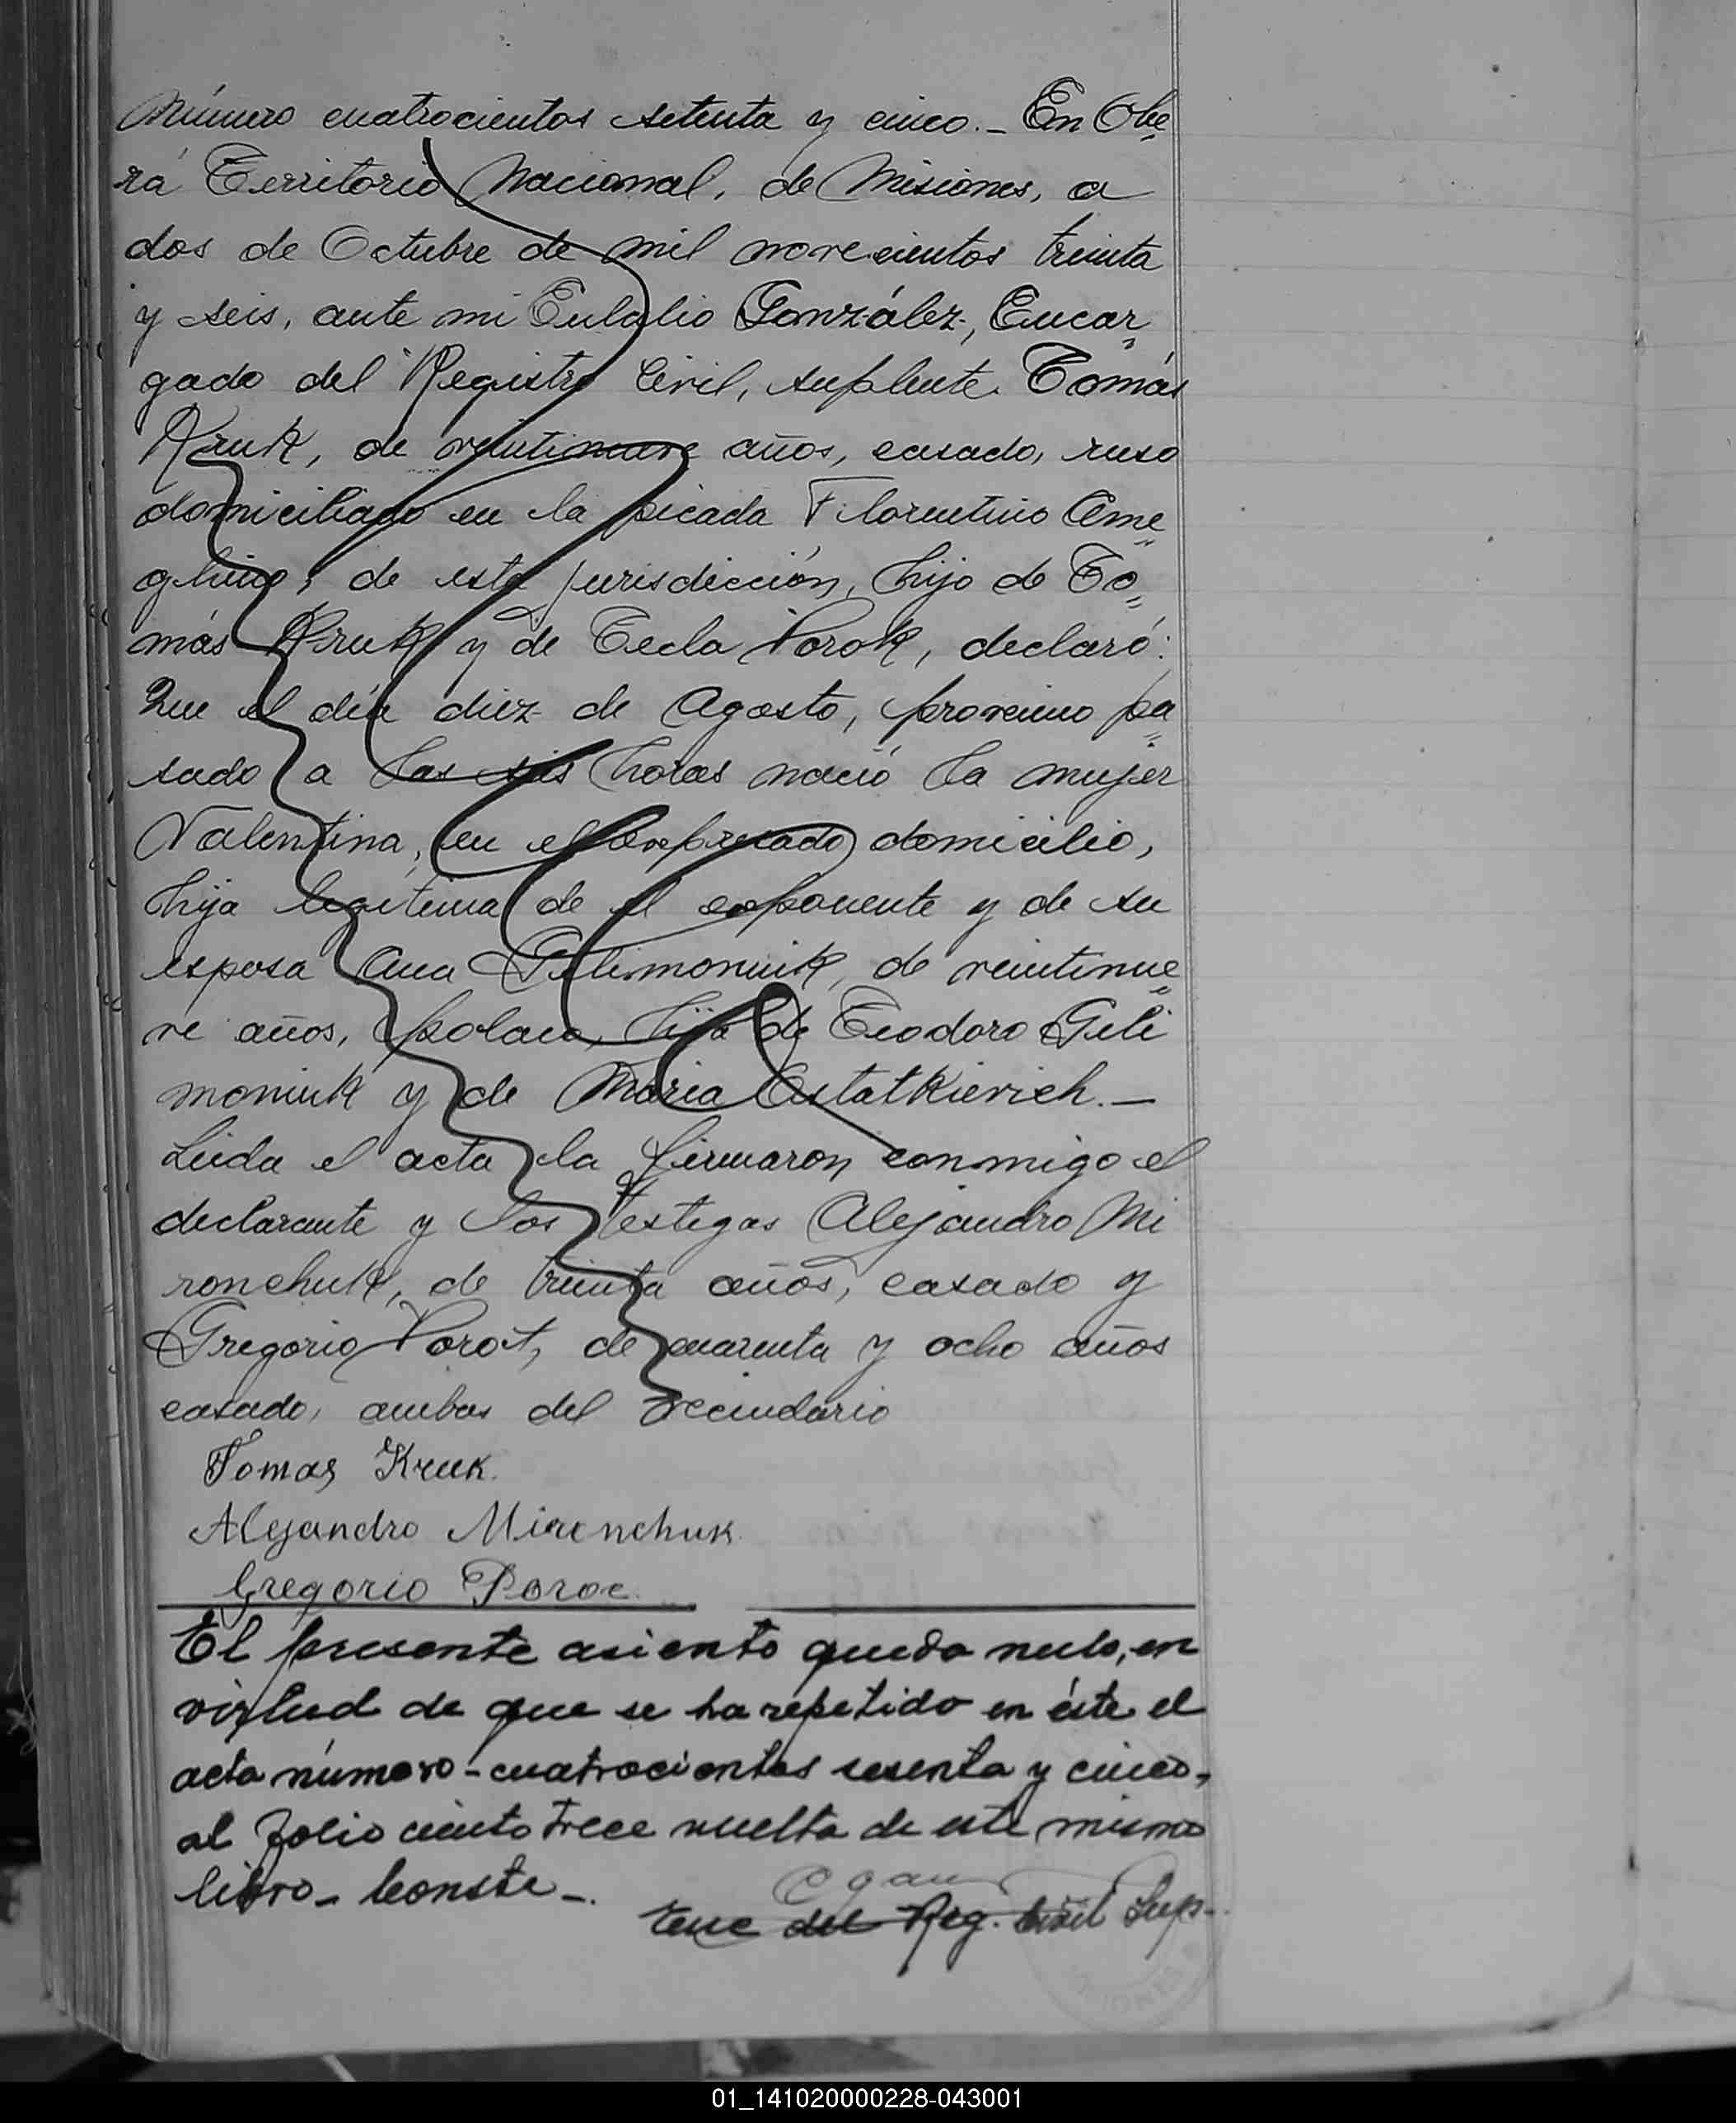 Número cuatrocientos setenta y cinco. – En Obe
rá Territorio Nacional, de Misiones, a
dos de Octubre de mil novecientos treinta
y seis, ante mi Eulalio González, Encar
gado del Registro Civil, suplente. Tomás
Kruk, de veintinueve años, casado, ruso
domiciliado en la picada Florentino Ame
ghino, de esta jurisdicción, hijo de To
más Kruk y de Tecla Vorok, declaró:
Que el día diez de Agosto, proximo pa
sado a las seis horas nació la mujer
Valentina, en el expresado domicilio,
hija legítima de el exponente y de su
esposa Ana Gilimoniuk, de veintinue
ve años, polaca, hija de Teodoro Gili
moniuk y de Maria Astatkievich. –
Leida el acta la firmaron conmigo el
declarante y los testigos Alejandro Mi
ronchuk, de treinta años, casado y
Gregorio Vorot, de cuarenta y ocho años
casado, ambos del vecindario
Tomas Kruk.
Alejandro Mironchuk.
Gregorio Poroc.
El presente asiento queda nulo, en
virtud de que se ha repetido en éste el
acta número - cuatrocientos sesenta y cinco,
al folio ciento trece vuelta de este mismo
libro – Conste –.
del Reg. Civil Sup.
01_141020000228-043001